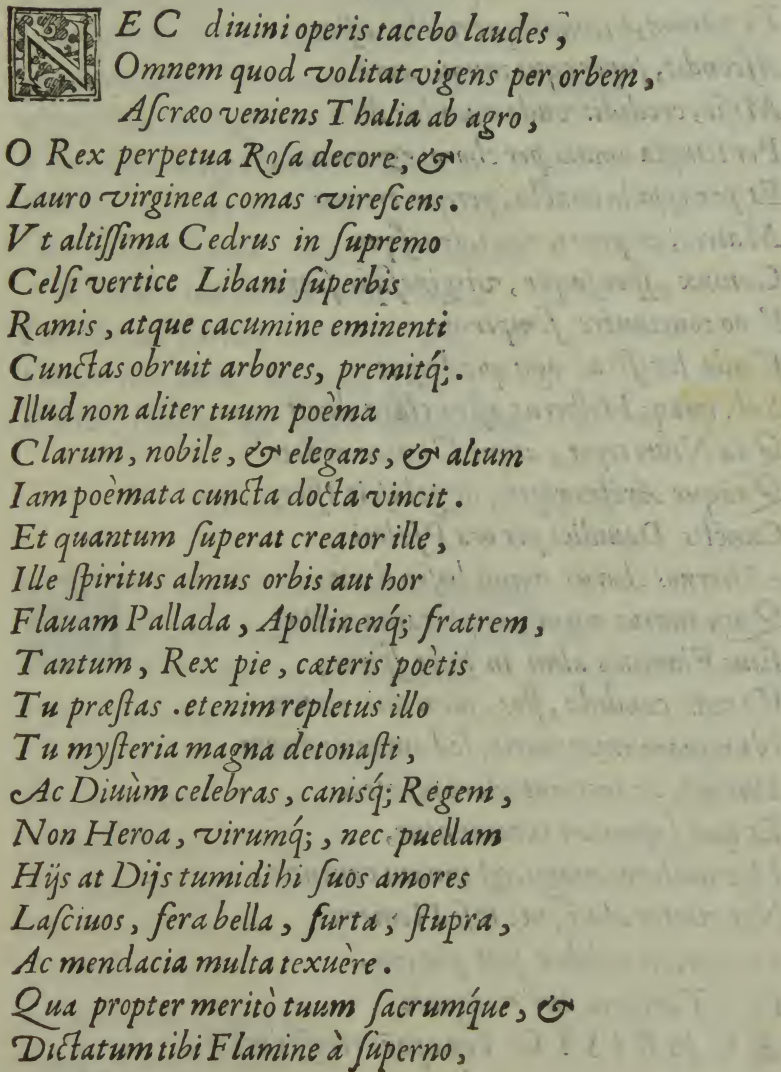 NEC diuini operis tacebo laudes,
Omnem quod volitat vigens per orbem,
Aſcræo veniens Thalia ab agro,
O Rex perpetua Roſa decore, &
Lauro virginea comas vireſcens.
Vt altiſſima Cedrus in ſupremo
Celſi vertice Libani ſuperbis
Ramis, atque cacumine eminenti
Cunctas obruit arbores, premitq́;.
Illud non aliter tuum poèma
Clarum, nobile, & elegans, & altum
Iam poèmata cuncta docta vincit.
Et quantum ſuperat creator ille,
Ille ſpiritus almus orbis aut hor
Flauam Pallada, Apollinenq́; fratrem,
Tantum, Rex pie, cæteris poètis
Tu præſtas. etenim repletus illo
Tu myſteria magna detonaſti,
Ac Diuùm celebras, canisq́; Regem,
Non Heroa, virumq́;, nec puellam
Hijs at Dijs tumidi hi ſuos amores
Laſciuos, fera bella, furta, ſtupra,
Ac mendacia multa texuère.
Qua propter meritò tuum ſacrumq́ue, &
Dictatum tibi Flamine à ſuperno,